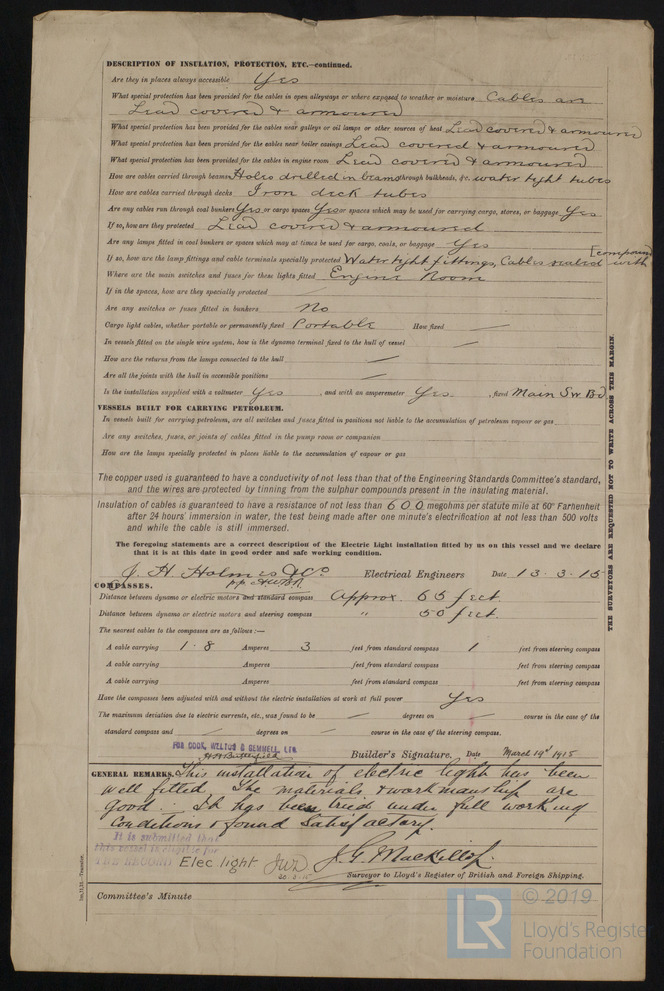 DESCRIPTION OF INSULATION, PROTECTION, ETC.—continued.
Are they in places always accessible Yes
What special protection has been provided for the cables in open alleyways or where exposed to weather or moisture Cables are
Lead covered & armoured
What special protection has been provided for the cables near galleys or oil lamps or other sources of heat Lead covered & armoured
What special protection has been provided for the cables near boiler casings Lead covered & armoured
What special protection has been provided for the cables in engine room Lead covered & armoured
How are cables carried through beams Holes drilled in beams through bulkheads, &c. water tight tubes
How are cables carried through decks Iron deck tubes
Are any cables run through coal bunkers Yes or cargo spaces Yes or spaces which may be used for carrying cargo, stores, or baggage Yes
If so, how are they protected Lead covered & armoured
Are any lamps fitted in coal bunkers or spaces which may at times be used for cargo, coals, or baggage Yes
If so, how are the lamp fittings and cable terminals specially protected Watertight fittings, Cables sealed with [compound
Where are the main switches and fuses for these lights fitted Engine Room
If in the spaces, how are they specially protected
Are any switches or fuses fitted in bunkers No
Cargo light cables, whether portable or permanently fixed Portable How fixed —
In vessels fitted on the single wire system, how is the dynamo terminal fixed to the hull of vessel —
How are the returns from the lamps connected to the hull —
Are all the joints with the hull in accessible positions —
Is the installation supplied with a voltmeter Yes , and with an amperemeter Yes , fixed Main Sw Bd
VESSELS BUILT FOR CARRYING PETROLEUM.
In vessels built for carrying petroleum, are all switches and fuses fitted in positions not liable to the accumulation of petroleum vapour or gas
Are any switches, fuses, or joints of cables fitted in the pump room or companion
How are the lamps specially protected in places liable to the accumulation of vapour or gas
The copper used is guaranteed to have a conductivity of not less than that of the Engineering Standards Committee's standard,
and the wires are protected by tinning from the sulphur compounds present in the insulating material.
Insulation of cables is guaranteed to have a resistance of not less than 600 megohms per statute mile at 60° Farhenheit
after 24 hours' immersion in water, the test being made after one minute's electrification at not less than 500 volts
and while the cable is still immersed.
The foregoing statements are a correct description of the Electric Light installation fitted by us on this vessel and we declare
that it is at this date in good order and safe working condition.
J. H. Holmes & Co. Electrical Engineers Date 13.3.15
COMPASSES.
Distance between dynamo or electric motors and standard compass Approx 65 feet
Distance between dynamo or electric motors and steering compass " 50 feet.
The nearest cables to the compasses are as follows:—
A cable carrying 1.8 Amperes 3 feet from standard compass 1 feet from steering compass
A cable carrying Amperes feet from standard compass feet from steering compass
A cable carrying Amperes feet from standard compass feet from steering compass
Have the compasses been adjusted with and without the electric installation at work at full power Yes
The maximum deviation due to electric currents, etc., was found to be — degrees on — course in the case of the
standard compass and — degrees on — course in the case of the steering compass.
FOR COOK, WELTON & GEMMELL, LTD.
Builder's Signature. Date March 19th 1915
GENERAL REMARKS. This installation of electric light has been
well fitted. The materials & workmanship are
good. It has been tried under full working
conditions & found satisfactory.
It is submitted that
this vessel is eligible for
THE RECORD Elec light JWD 20.3.15 J. G. Mackillop
Surveyor to Lloyd's Register of British and Foreign Shipping.
Committee's Minute
THE SURVEYORS ARE REQUESTED NOT TO WRITE ACROSS THIS MARGIN.
© 2019
LR
Lloyd's Register
Foundation